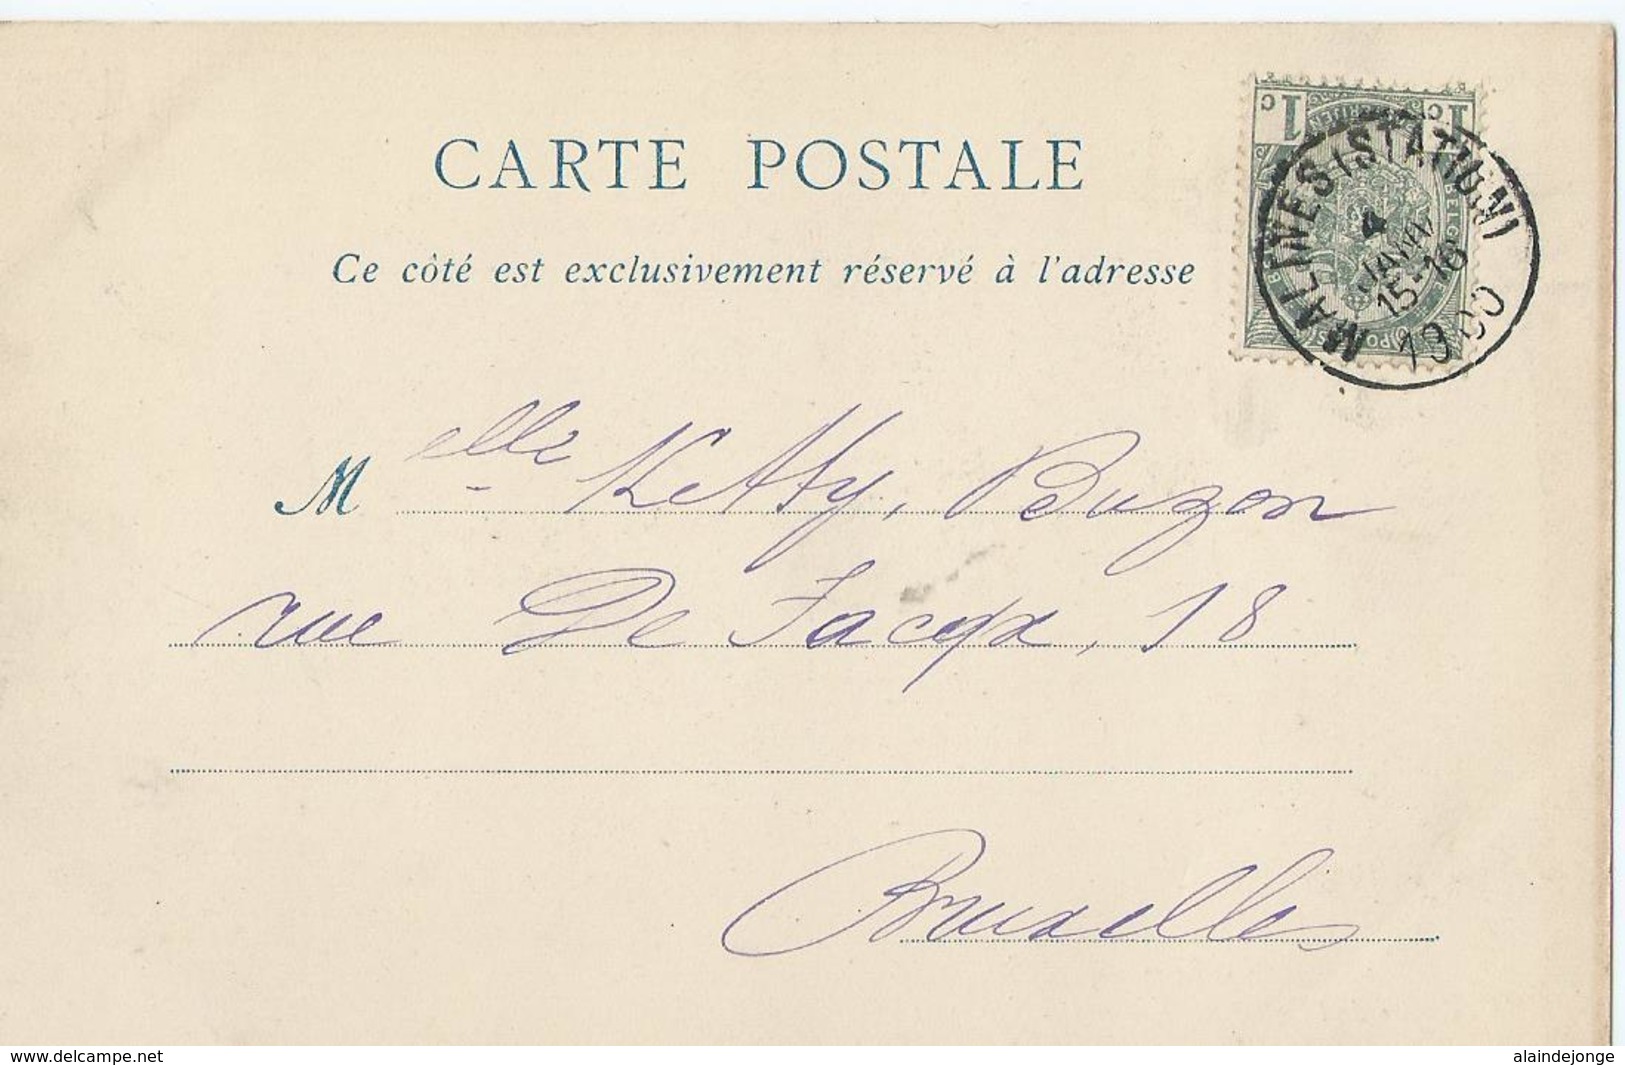 CARTE POSTALE
Ce côté est exclusivement réservé à l'adresse
1 C 1 C
MALINES (STATION)
4
JANV
15-16
1900
Melle Ketty, Buzon
rue De Facqx, 18
Bruxelles
www.delcampe.net
alaindejonge